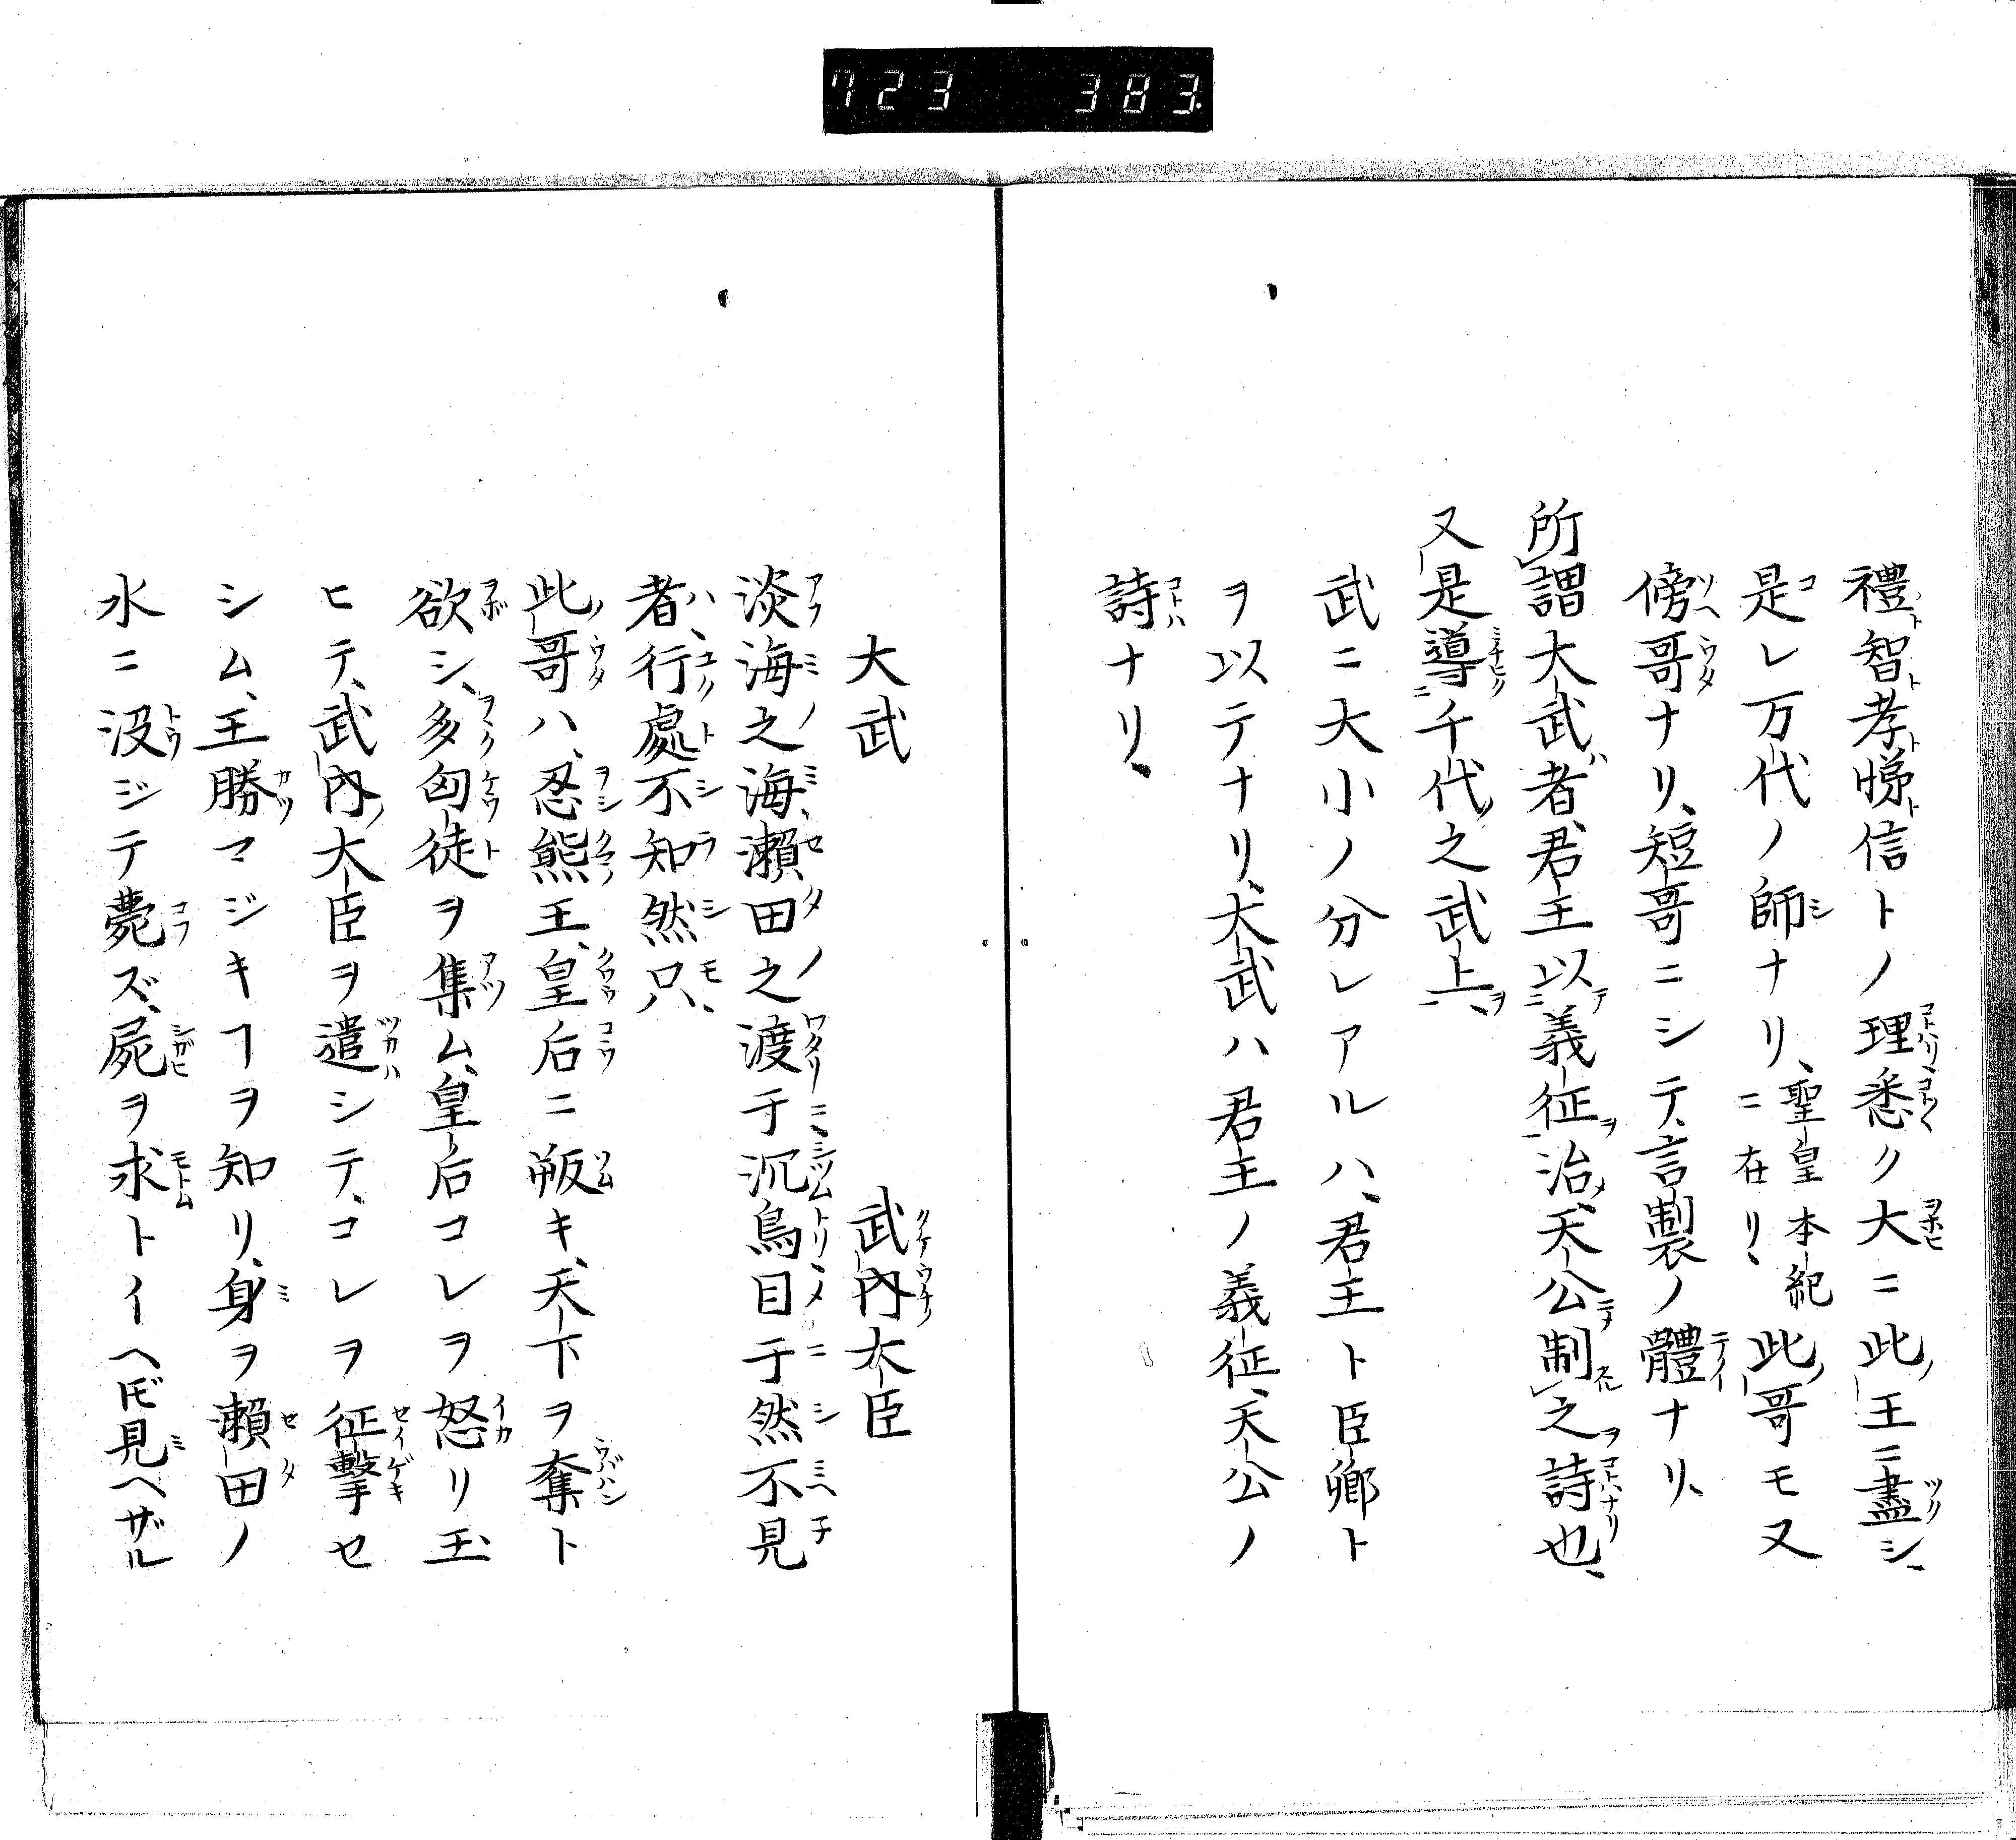 723 383
禮智孝悌信トノ理悉ク大ニ此王ニ盡シ、
是レ万代ノ師ナリ、聖皇本紀ニ在リ、此哥モ又
傍哥ナリ、短哥ニシテ、言製ノ體ナリ、
所謂大武者、君王以義征治、天公制之詩也、
又是導千代之武上、
武ニ大小ノ分レアルハ、君主ト臣卿ト
ヲ以テナリ、大武ハ君主ノ義征、天公ノ
詩ナリ、
大武 武內大臣
淡海之海瀨田之渡于沉鳥目于然不見
者、行處不知然只、
此哥ハ、忍熊王、皇后ニ叛キ、天下ヲ奪ト
欲シ、多匈徒ヲ集ム、皇后コレヲ怒リ玉
ヒテ、武內大臣ヲ遣シテ、コレヲ征擊セ
シム、王勝マジキヿヲ知リ、身ヲ瀨田ノ
水ニ沒ジテ薨ズ、屍ヲ求トイヘ𪜈見ヘザル